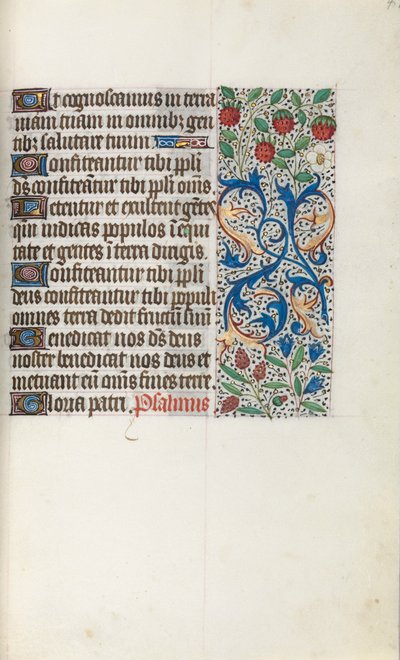 Ut cognoscamus in terra
uiam tuam in omnibꝫ gen
tibꝫ salutare tuum
Confiteantur tibi ppl̄i
ds̄ confiteātur tibi ppl̄i om̄s.
Letentur et exultent gētes
qm̄ iudicas populos ī equi
tate et gentes ī terra dirigis.
Confiteantur tibi ppl̄i
deus confiteantur tibi populi
omnes terra dedit fructum suū
Benedicat nos ds̄ deus
noster benedicat nos deus et
metuant eū om̄s fines terre.
Gloria patri. Psalmus